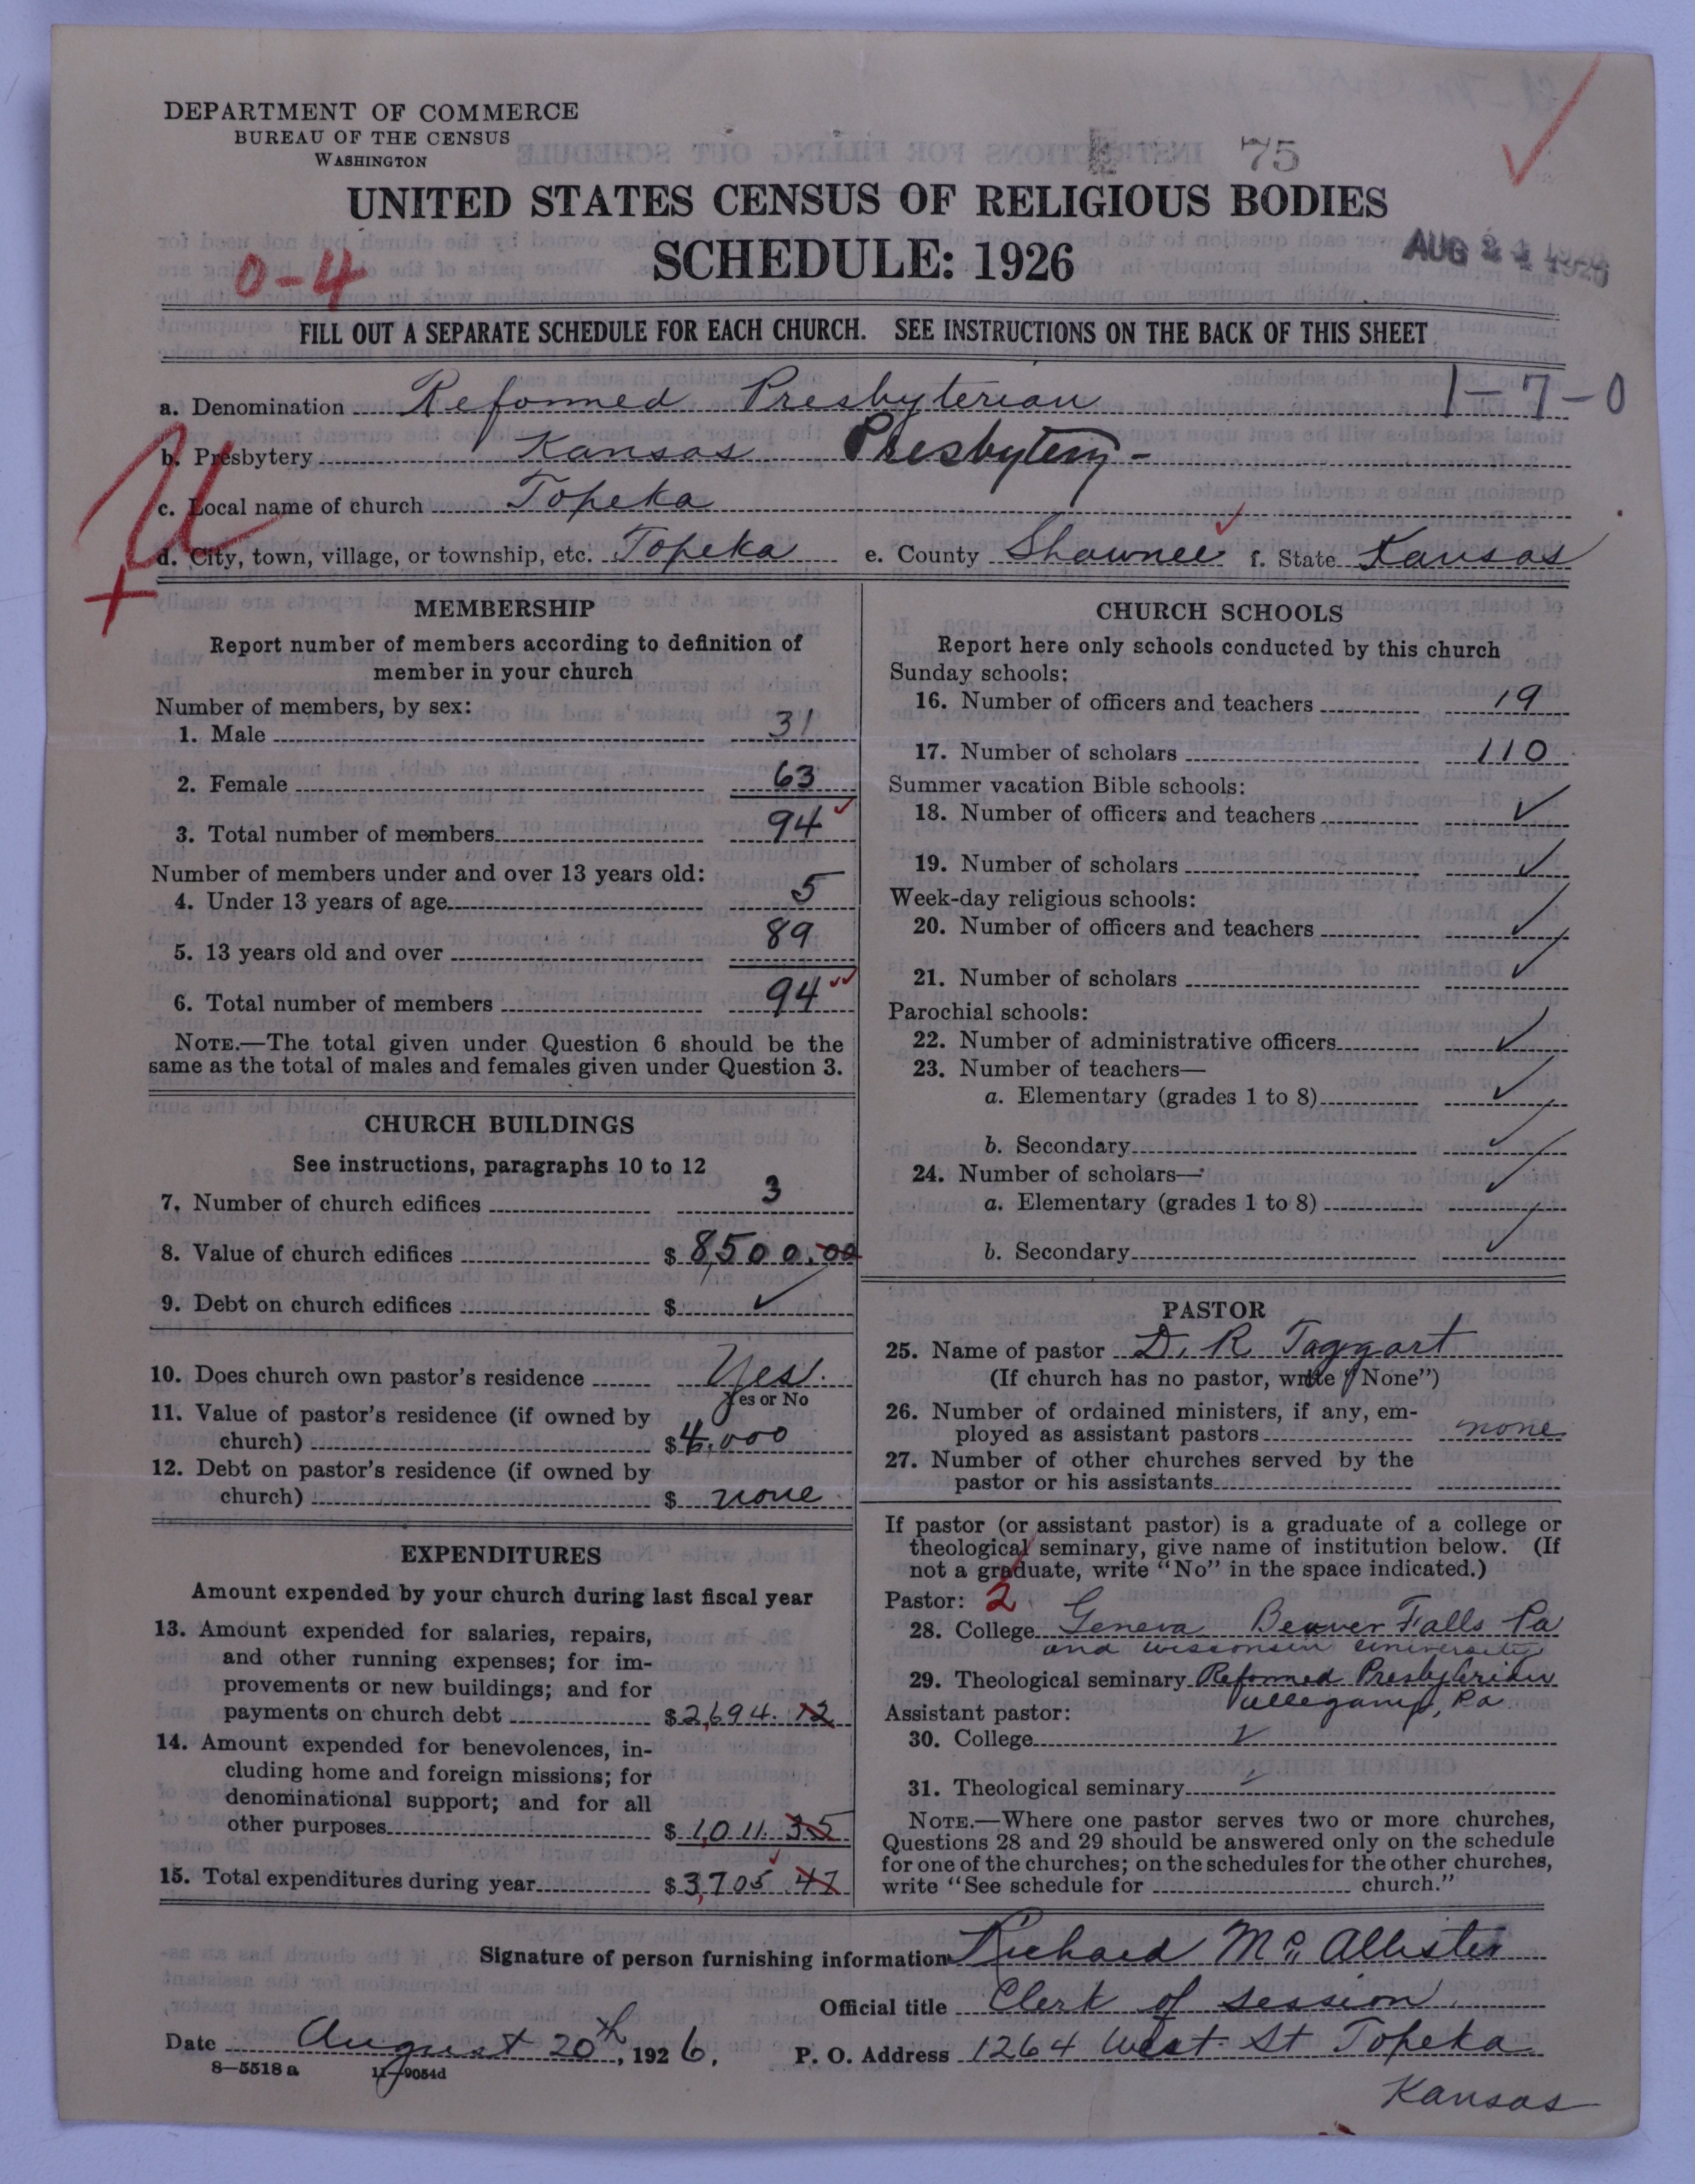 DEPARTMENT OF COMMERCE
BUREAU OF THE CENSUS
WASHINGTON
75
UNITED STATES CENSUS OF RELIGIOUS BODIES
SCHEDULE: 1926
AUG
0-4
FILL OUT A SEPARATE SCHEDULE FOR EACH CHURCH. SEE INSTRUCTIONS ON THE BACK OF THIS SHEET
a. Denomination Reformed Presbyterian 1-7-0
b. Presbytery Kansas Presbytery-
c. Local name of church Topeka
d. City, town, village, or township, etc. Topeka e. County Shawnee f. State Kansas
MEMBERSHIP
Report number of members according to definition of
member in your church
Number of members, by sex:
1. Male 31
2. Female 63
3. Total number of members 94
Number of members under and over 13 years old:
4. Under 13 years of age 5
5. 13 years old and over 89
6. Total number of members 94
NOTE.—The total given under Question 6 should be the
same as the total of males and females given under Question 3.
CHURCH BUILDINGS
See instructions, paragraphs 10 to 12
7. Number of church edifices 3
8. Value of church edifices $ 8,500.00
9. Debt on church edifices $ ✓
10. Does church own pastor's residence Yes.
Yes or No
11. Value of pastor's residence (if owned by
church) $ 4,000
12. Debt on pastor's residence (if owned by
church) $ none
EXPENDITURES
Amount expended by your church during last fiscal year
13. Amount expended for salaries, repairs,
and other running expenses; for im-
provements or new buildings; and for
payments on church debt $ 2,694.12
14. Amount expended for benevolences, in-
cluding home and foreign missions; for
denominational support; and for all
other purposes $ 1,011.35
15. Total expenditures during year $ 3,705 47
CHURCH SCHOOLS
Report here only schools conducted by this church
Sunday schools:
16. Number of officers and teachers 19
17. Number of scholars 110
Summer vacation Bible schools:
18. Number of officers and teachers ✓
19. Number of scholars ✓
Week-day religious schools:
20. Number of officers and teachers ✓
21. Number of scholars ✓
Parochial schools:
22. Number of administrative officers ✓
23. Number of teachers—
a. Elementary (grades 1 to 8) ✓
b. Secondary ✓
24. Number of scholars—
a. Elementary (grades 1 to 8) ✓
b. Secondary ✓
PASTOR
25. Name of pastor D. R. Taggart
(If church has no pastor, write "None")
26. Number of ordained ministers, if any, em-
ployed as assistant pastors none
27. Number of other churches served by the
pastor or his assistants
If pastor (or assistant pastor) is a graduate of a college or
theological seminary, give name of institution below. (If
not a graduate, write "No" in the space indicated.)
Pastor: 2
28. College Geneva Beaver Falls Pa
and wisconsin university
29. Theological seminary Reformed Presbyterian
allegany, Pa
Assistant pastor:
30. College ✓
31. Theological seminary ✓
NOTE.—Where one pastor serves two or more churches,
Questions 28 and 29 should be answered only on the schedule
for one of the churches; on the schedules for the other churches,
write "See schedule for church."
Signature of person furnishing information Richard Mc Allister
Official title Clerk of session
Date August 20th, 1926. P. O. Address 1264 West St Topeka
Kansas
8-5518 a 11-9054d